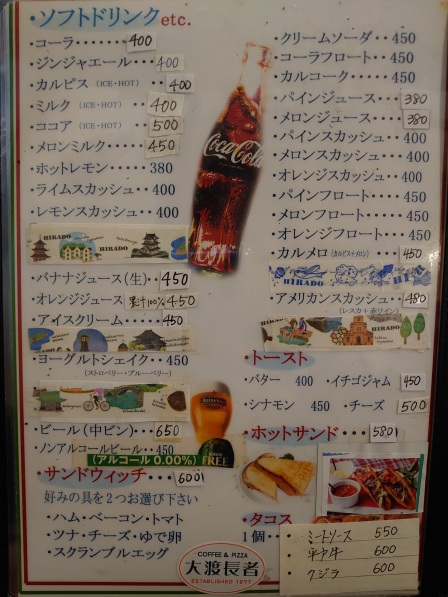 ・ソフトドリンク etc.
・コーラ・・・・・・・400
・ジンジャエール・・400
・カルピス (ICE・HOT) ・・400
・ミルク (ICE・HOT) ・・400
・ココア (ICE・HOT) ・・500
・メロンミルク・・450
・ホットレモン・・ 380
・ライムスカッシュ・・ 400
・レモンスカッシュ・・ 400
HIRADO HIRADO
・バナナジュース(生)・450
・オレンジジュース 果汁100% 450
・アイスクリーム・・・450
HIRADO
・ヨーグルトシェイク・・450
(ストロベリー・ブルーベリー)
・ビール(中ビン)・・650
・ノンアルコールビール・・450
(アルコール 0.00%)
FREE
・サンドウィッチ・・・600
好みの具を2つお選び下さい
・ハム・ベーコン・トマト
・ツナ・チーズ・ゆで卵
・スクランブルエッグ
Coca-Cola
・クリームソーダ・・450
・コーラフロート・・450
・カルコーク・・・・450
・パインジュース・・380
・メロンジュース・・380
・パインスカッシュ・・400
・メロンスカッシュ・・400
・オレンジスカッシュ・・400
・パインフロート・・450
・メロンフロート・・450
・オレンジフロート・・450
・カルメロ (カルピストメロン) 450
HIRADO
・アメリカンスカッシュ・・480
(レスカ+赤ワイン)
HIRADO
・トースト
・バター 400 ・イチゴジャム 450
・シナモン 450 ・チーズ 500
・ホットサンド・・580
・タコス
1個・・
・ミートソース 550
・平戸牛 600
・クジラ 600
COFFEE & PIZZA
大渡長者
ESTABLISHED 1977